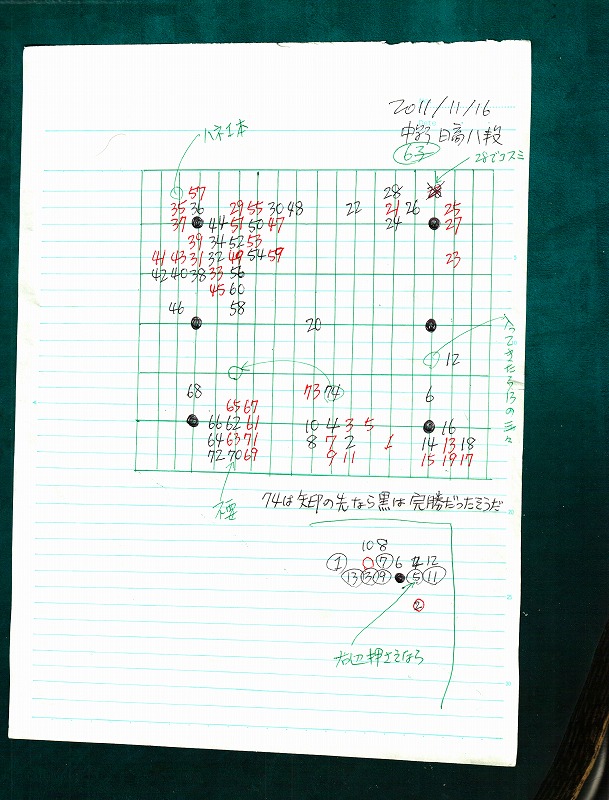 2011/11/16
日高八段
6子
28でコスミ
ハネ1本
57 28 28
35 36 29 55 30 48 22 21 26 25
37 44 57 50 47 24 27
39 34 52 53
41 43 31 32 49 54 59 23
42 40 38 33 56
45 60
46 58
20
12
入ってきたら13の三々
68 73 74 6
65 67
66 62 61 10 4 3 5 16
64 63 71 8 7 2 1 14 13 18
72 70 69 9 11 15 19 17
74は矢印の先なら黒は完勝だったそうだ
10 8
1 7 6 4 12
13 15 9 5 11
2
右辺押さえなら